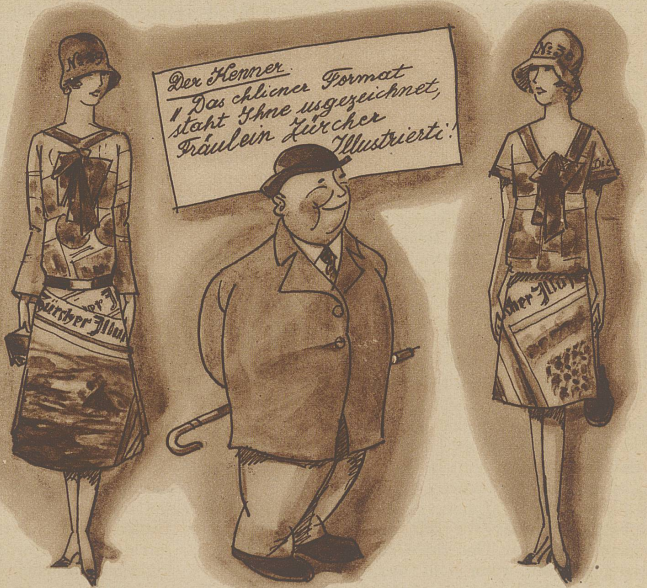 Der Kenner.
"Das chliener Format
staht Ihne usgezeichnet,
Fräulein Zürcher
Illustrierti!
No
No
Zürcher Illus
cher Illus